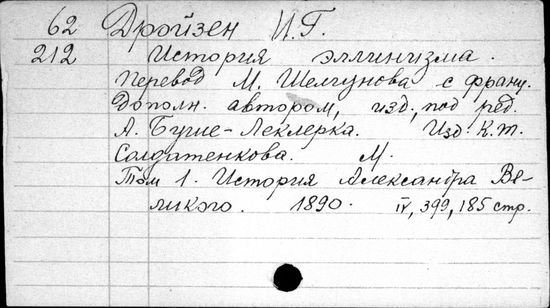 62 Дройзен И.Г.
212 История эллинизма.
Перевод М. Шелгунова с франц.
Дополн. автором, изд., под ред.
А. Буше-Леклерка. Изд. К.Т.
Солдатенкова. М.
Том 1. История Александра Ве-
ликого. 1890. IV, 399, 185 стр.